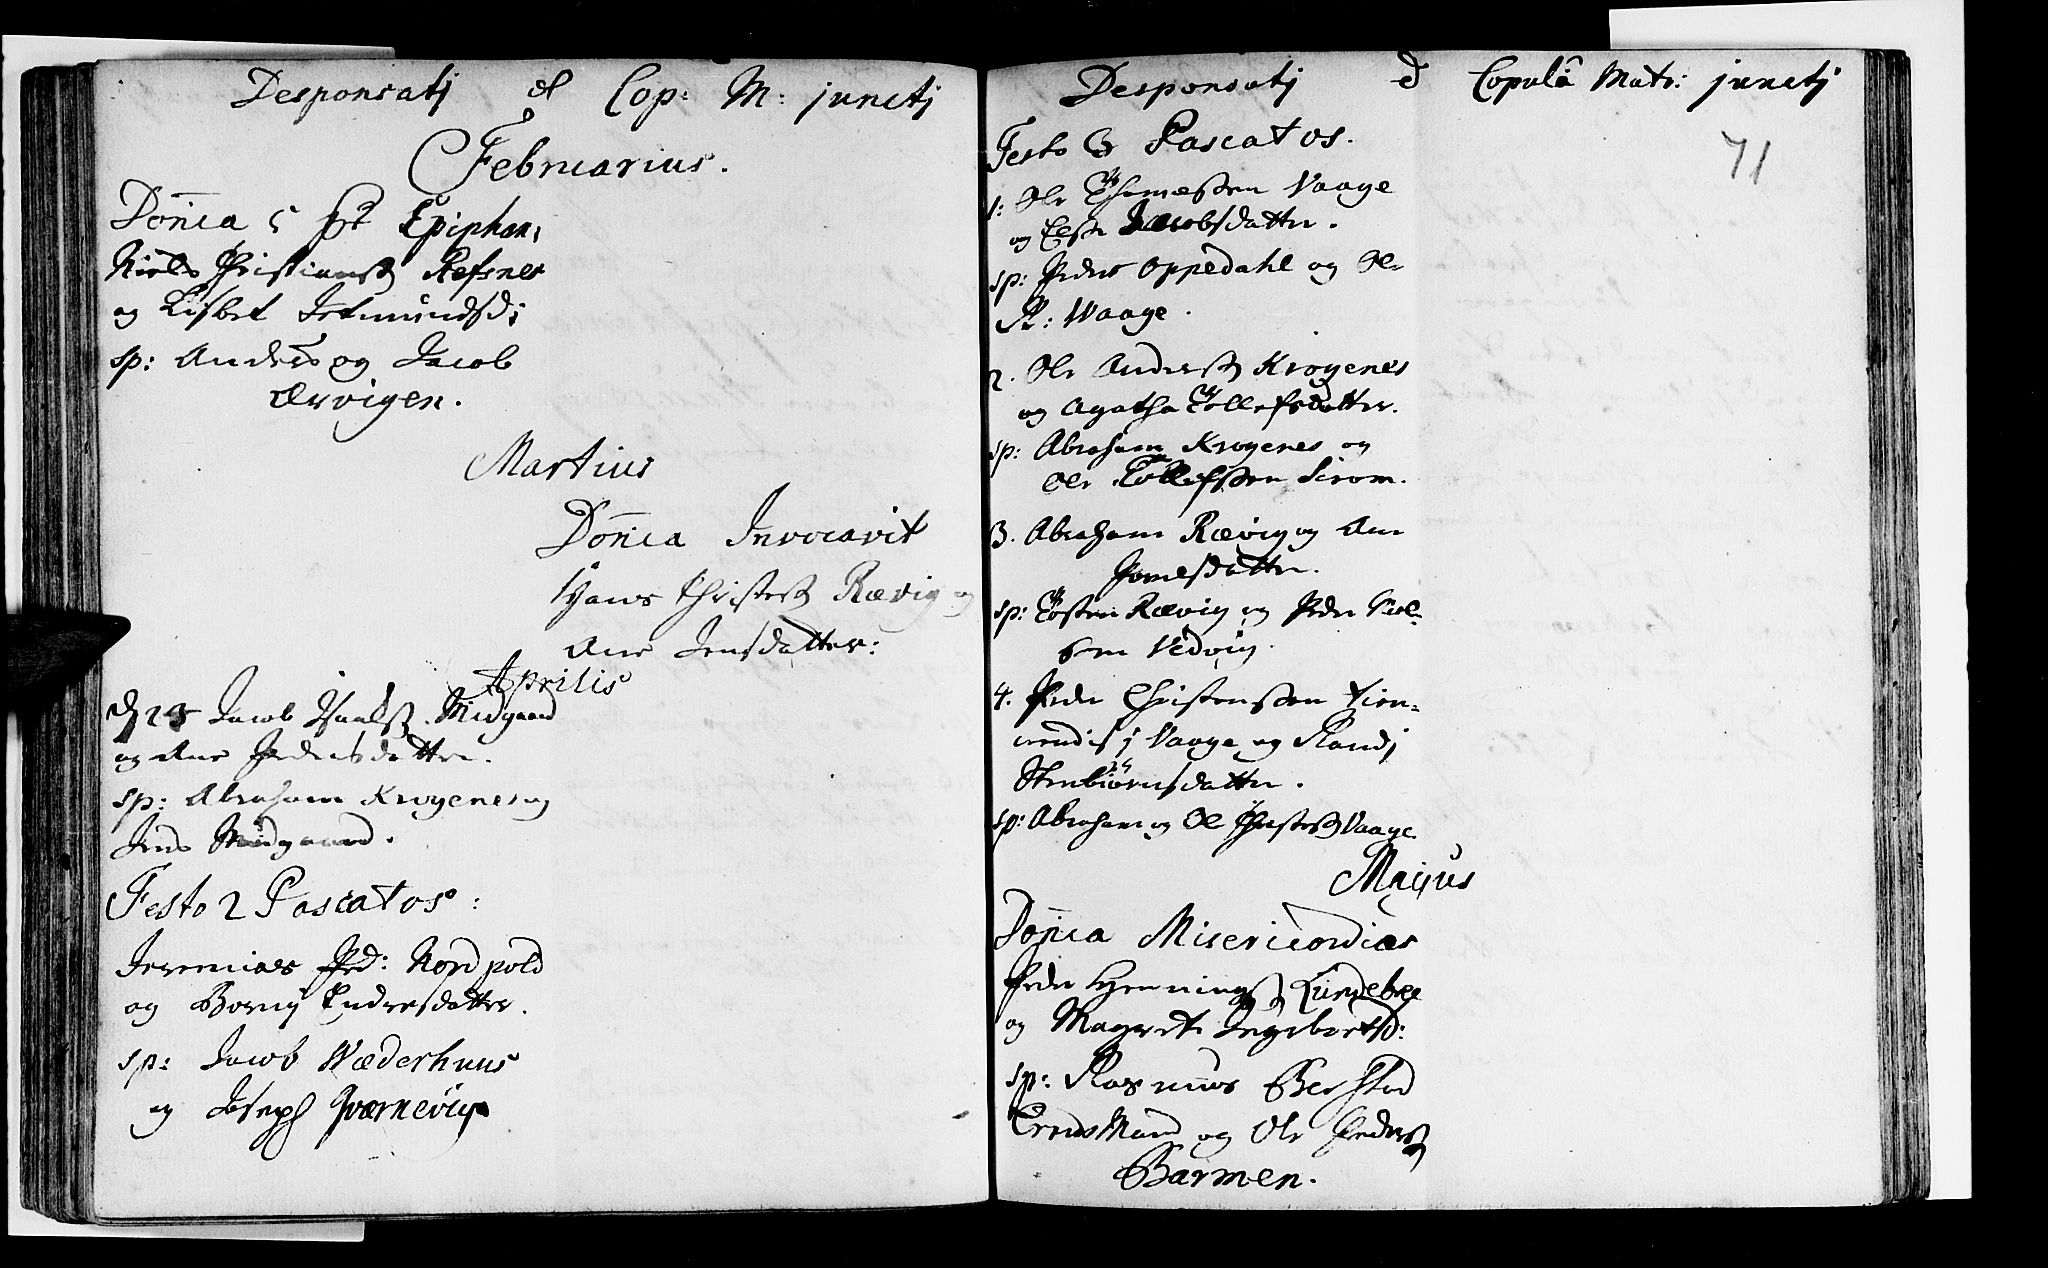 Desponsatj et Cop: M: junctj
Februarius.
Doñica 5 pt Epiphan:
Niels Christiansß Refsnes
og Lisbet Jetmundsd:
sp: Anders og Jacob
Ervigen.
Martius
Doñica Invocavit
Hans Christensß Rævig og
Ane Jensdatter:
Aprilis
d 25 Jacob Midgaard
og Ane Pedersdatter.
sp: Abraham Krogenes og
Jens Midgaard.
Festo 2 Pascatos:
Jeremias Ped: Nordpold
og Borni Endresdatter.
sp: Jacob Wæderhuus
og Joseph Qværnevig
Desponsatj et Copulâ Matr: junctj
71
Festo 3 Pascatos.
1: Ole Thomæssen Vaage
og Jacobsdatter.
sp: Peder Oppedahl og Ole
R: Waage.
2. Ole Andersß Krogenes
og Agatha Tollefsdatter.
sp: Abraham Krogenes og
Ole Tollefssen
3. Abraham Rævig og Ane
Povelsdatter.
sp: Tosten Rævig og Peder Niel-
sen Vedvig.
4. Peder Christenssen tien-
nendis j Vaage og Randj
Stenbiörnsdatter.
sp: Abraham og Ole Christensß Vaage
Majus
Doñica Misericordias
Peder Henningsß Lundebye
og Magrete Ingebretsd:
sp: Rasmus Berstad
Lensmand og Ole Pedersß
Barmen.